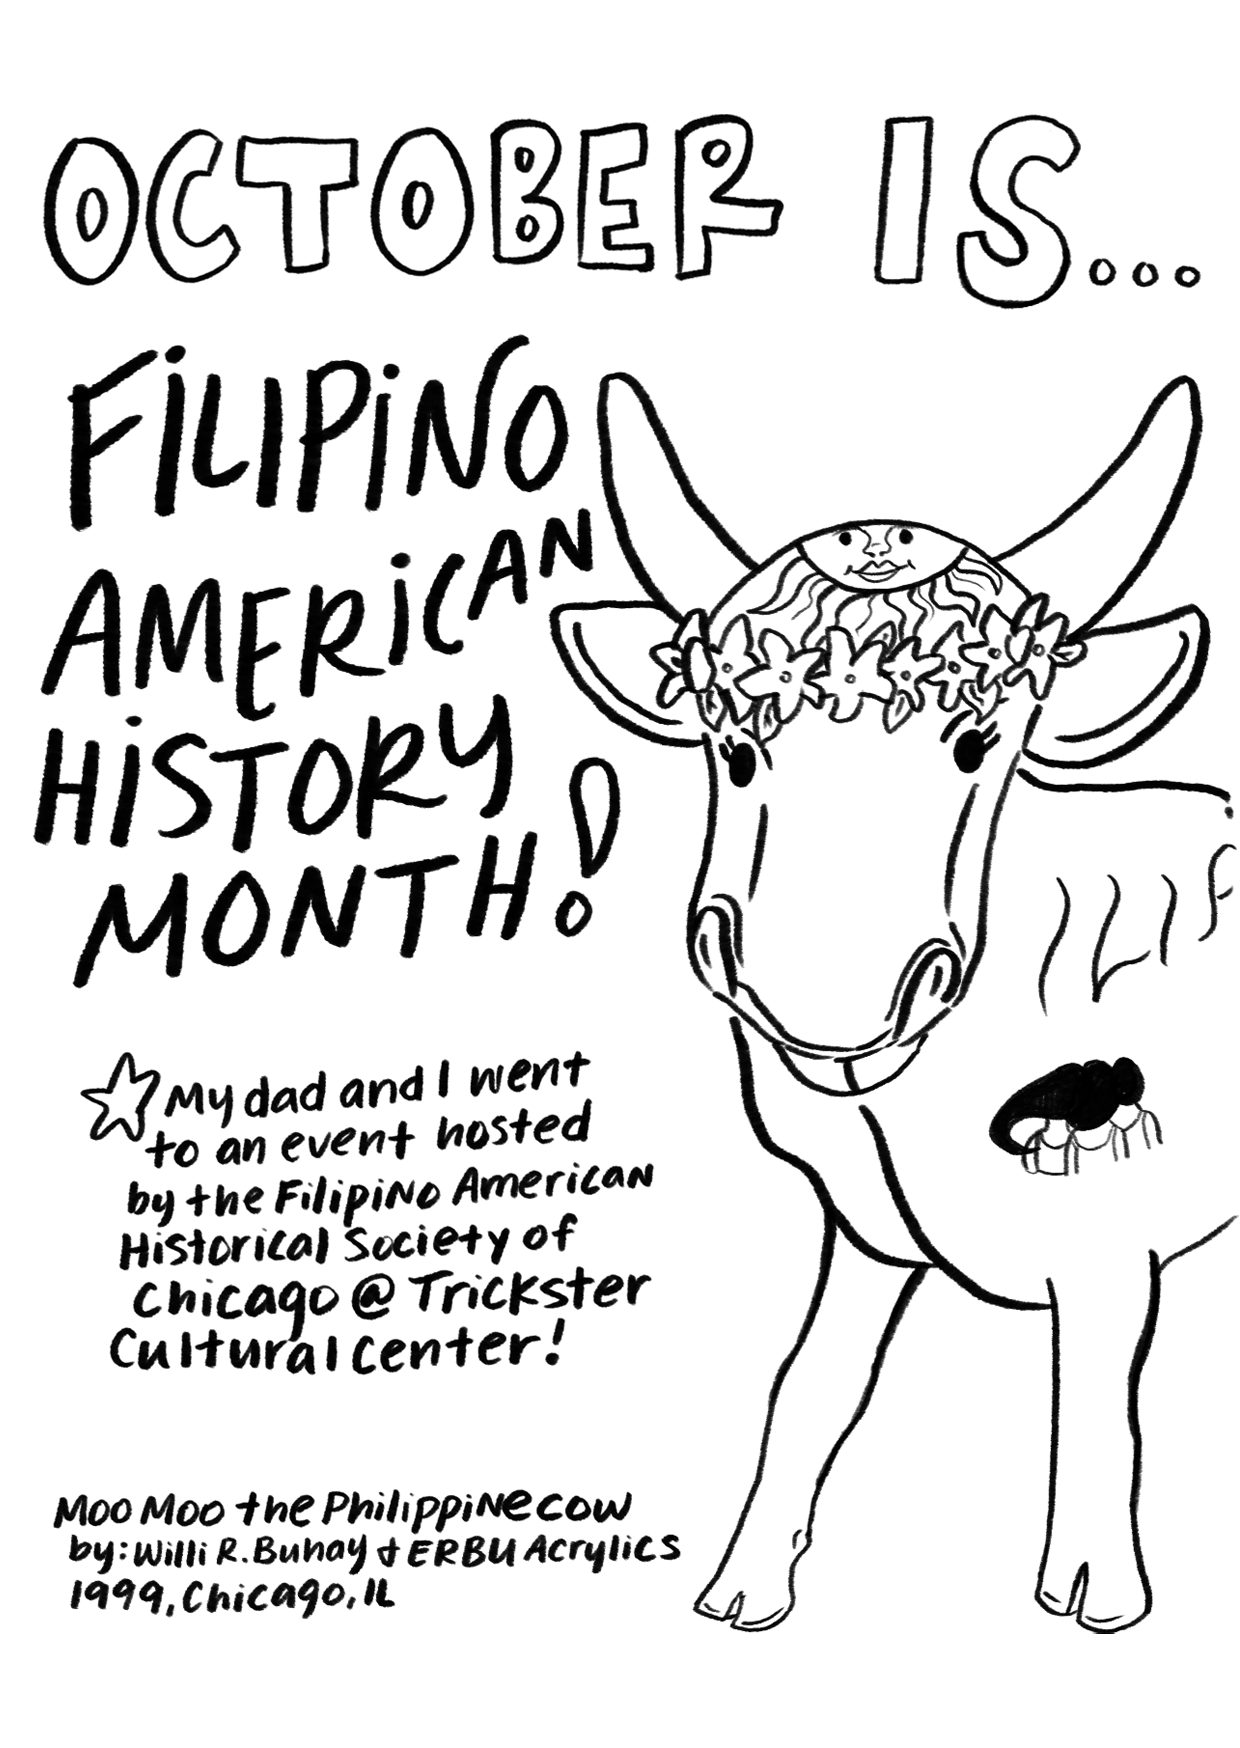 OCTOBER IS...
FILIPINO
AMERICAN
HISTORY
MONTH!
☆ My dad and I went
to an event hosted
by the Filipino American
Historical Society of
Chicago @ Trickster
Cultural Center!
Moo Moo the Philippine cow
by: Willi R. Buhay & ERBU Acrylics
1999, Chicago, IL